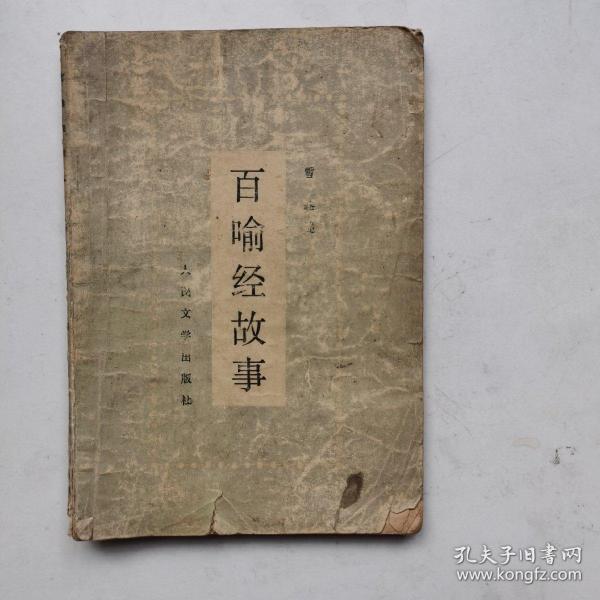 雪
百喻经故事
人民文学出版社
孔夫子旧书网
www.kongfz.com